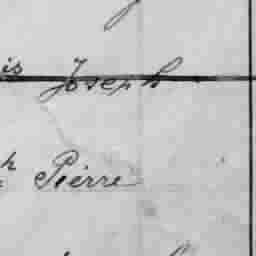 is Joseph
h Pierre